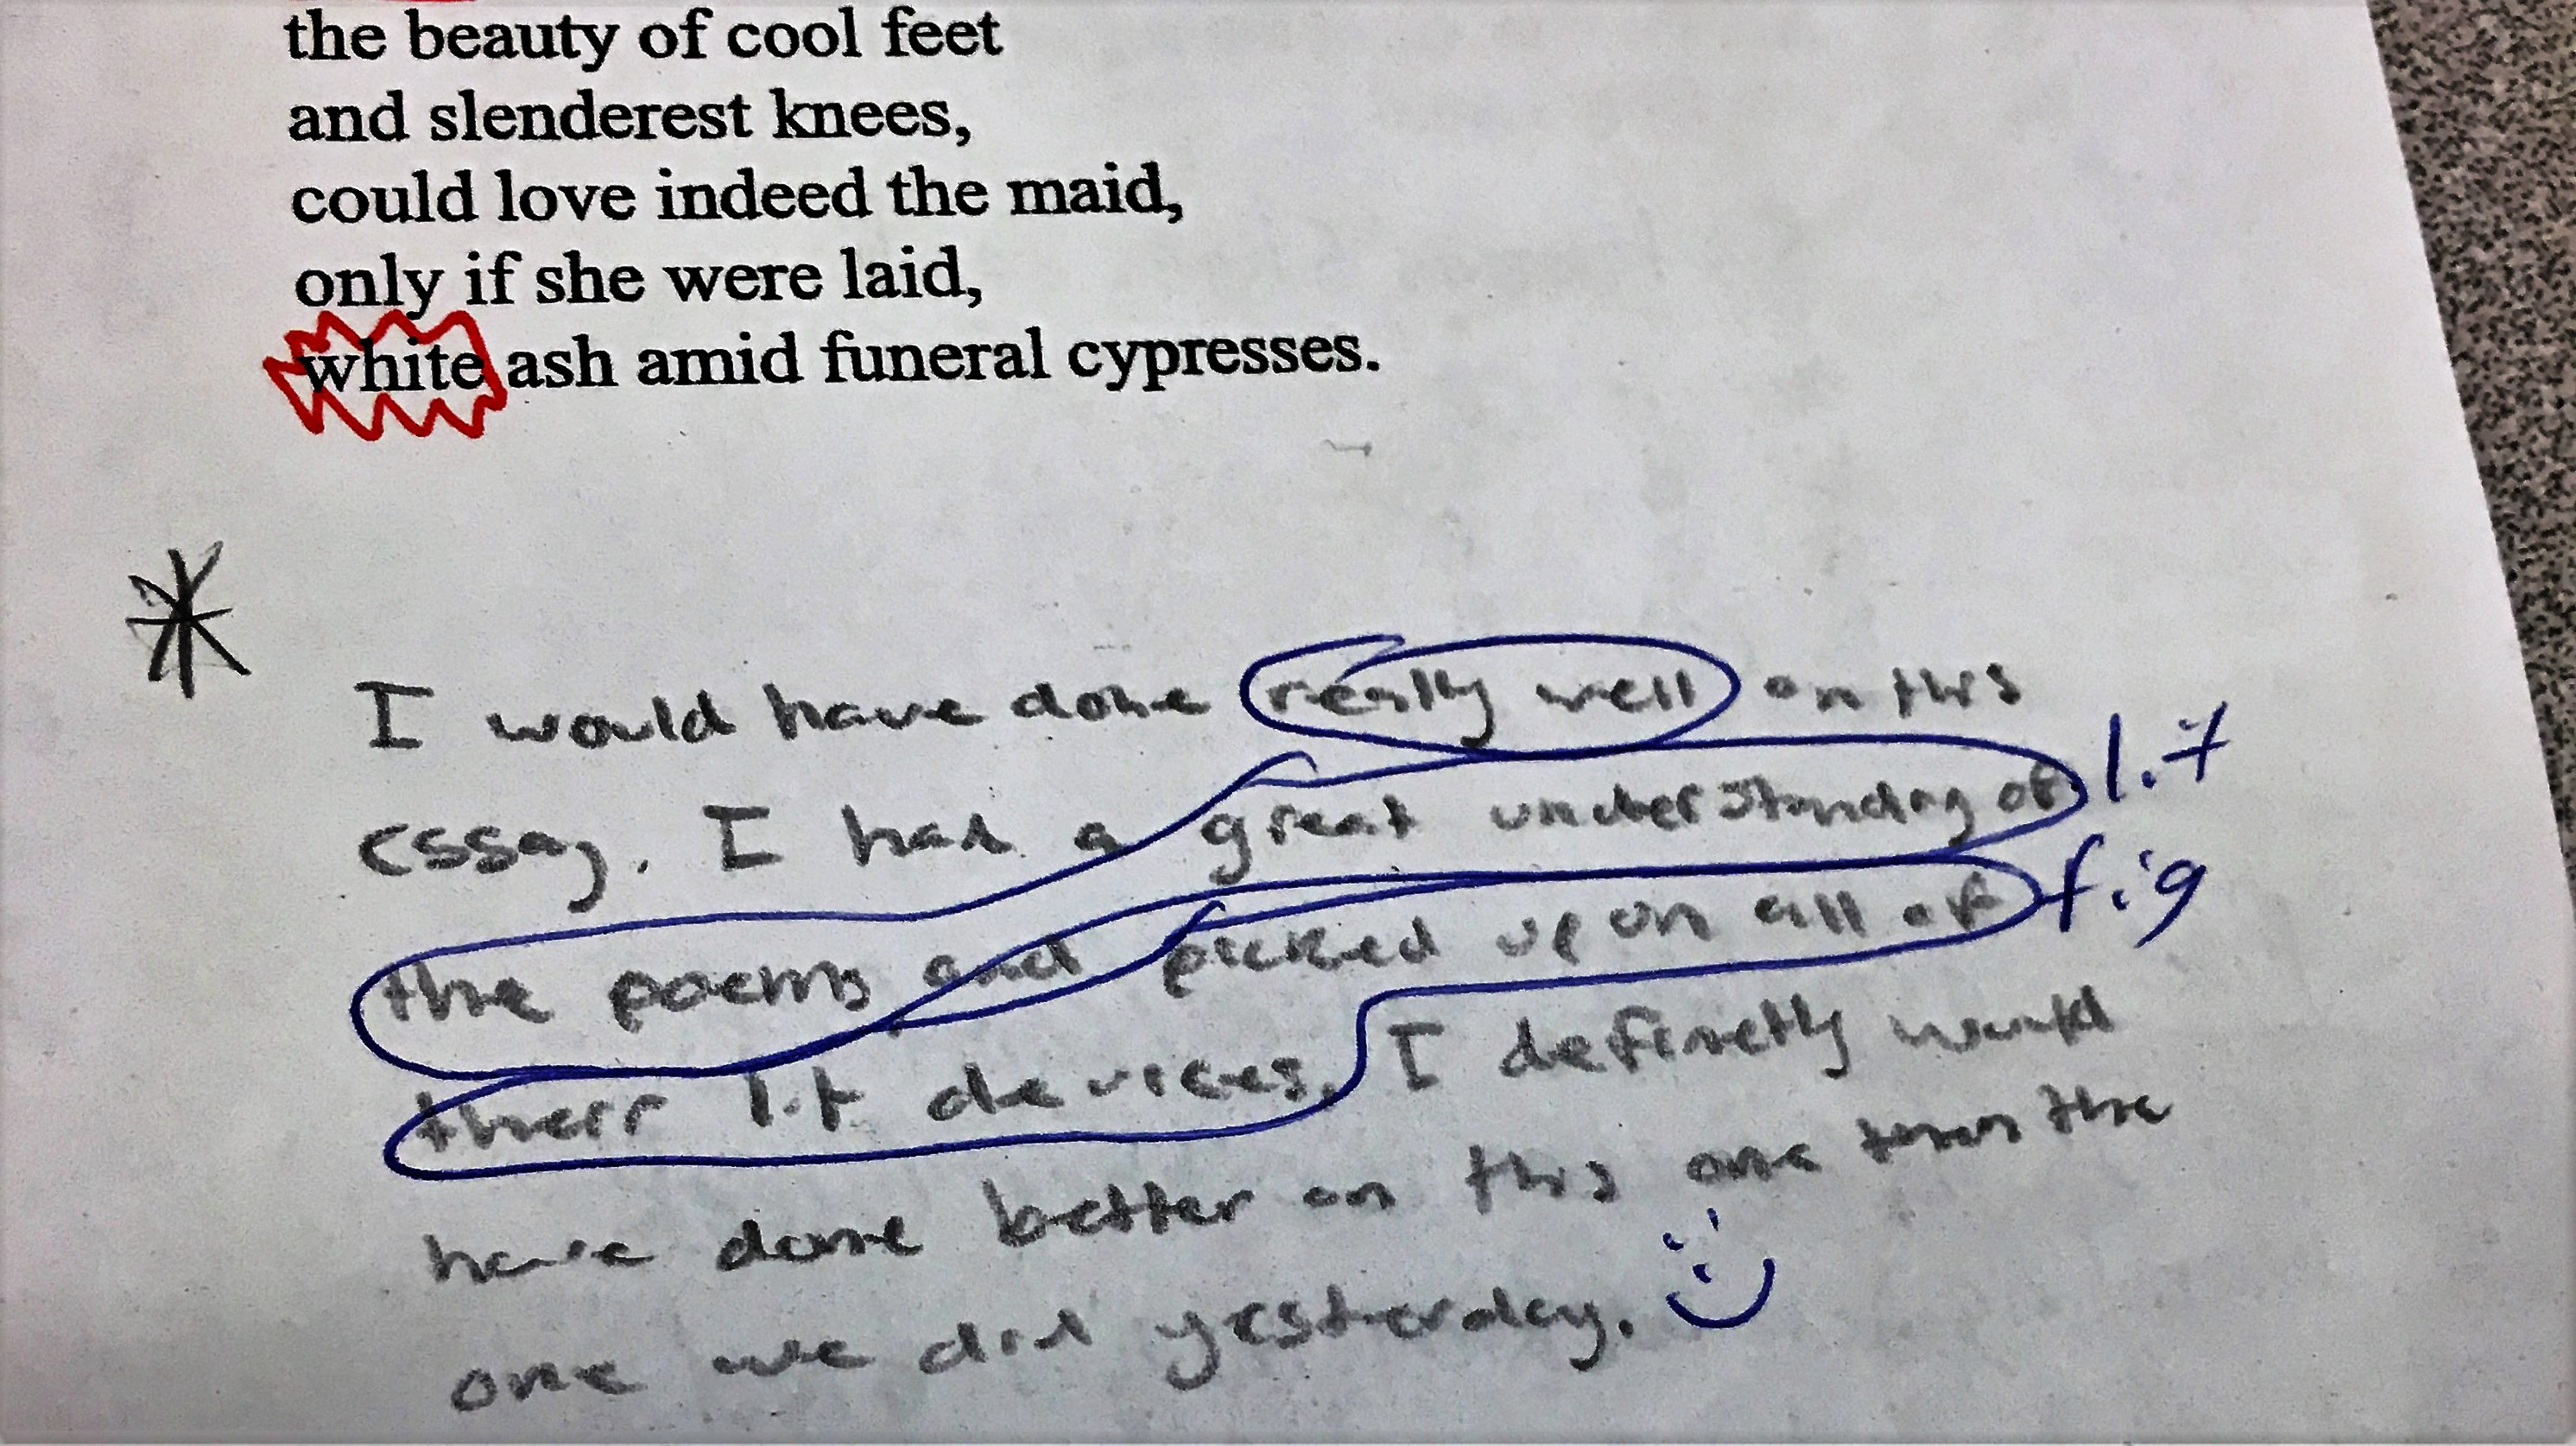 the beauty of cool feet
and slenderest knees,
could love indeed the maid,
only if she were laid,
white ash amid funeral cypresses.
I would have done really well on this
essay. I had a great understanding of
lit
the poems and picked up on all of
fig
their lit devices. I definetly would
have done better on this one than the
one we did yesterday.